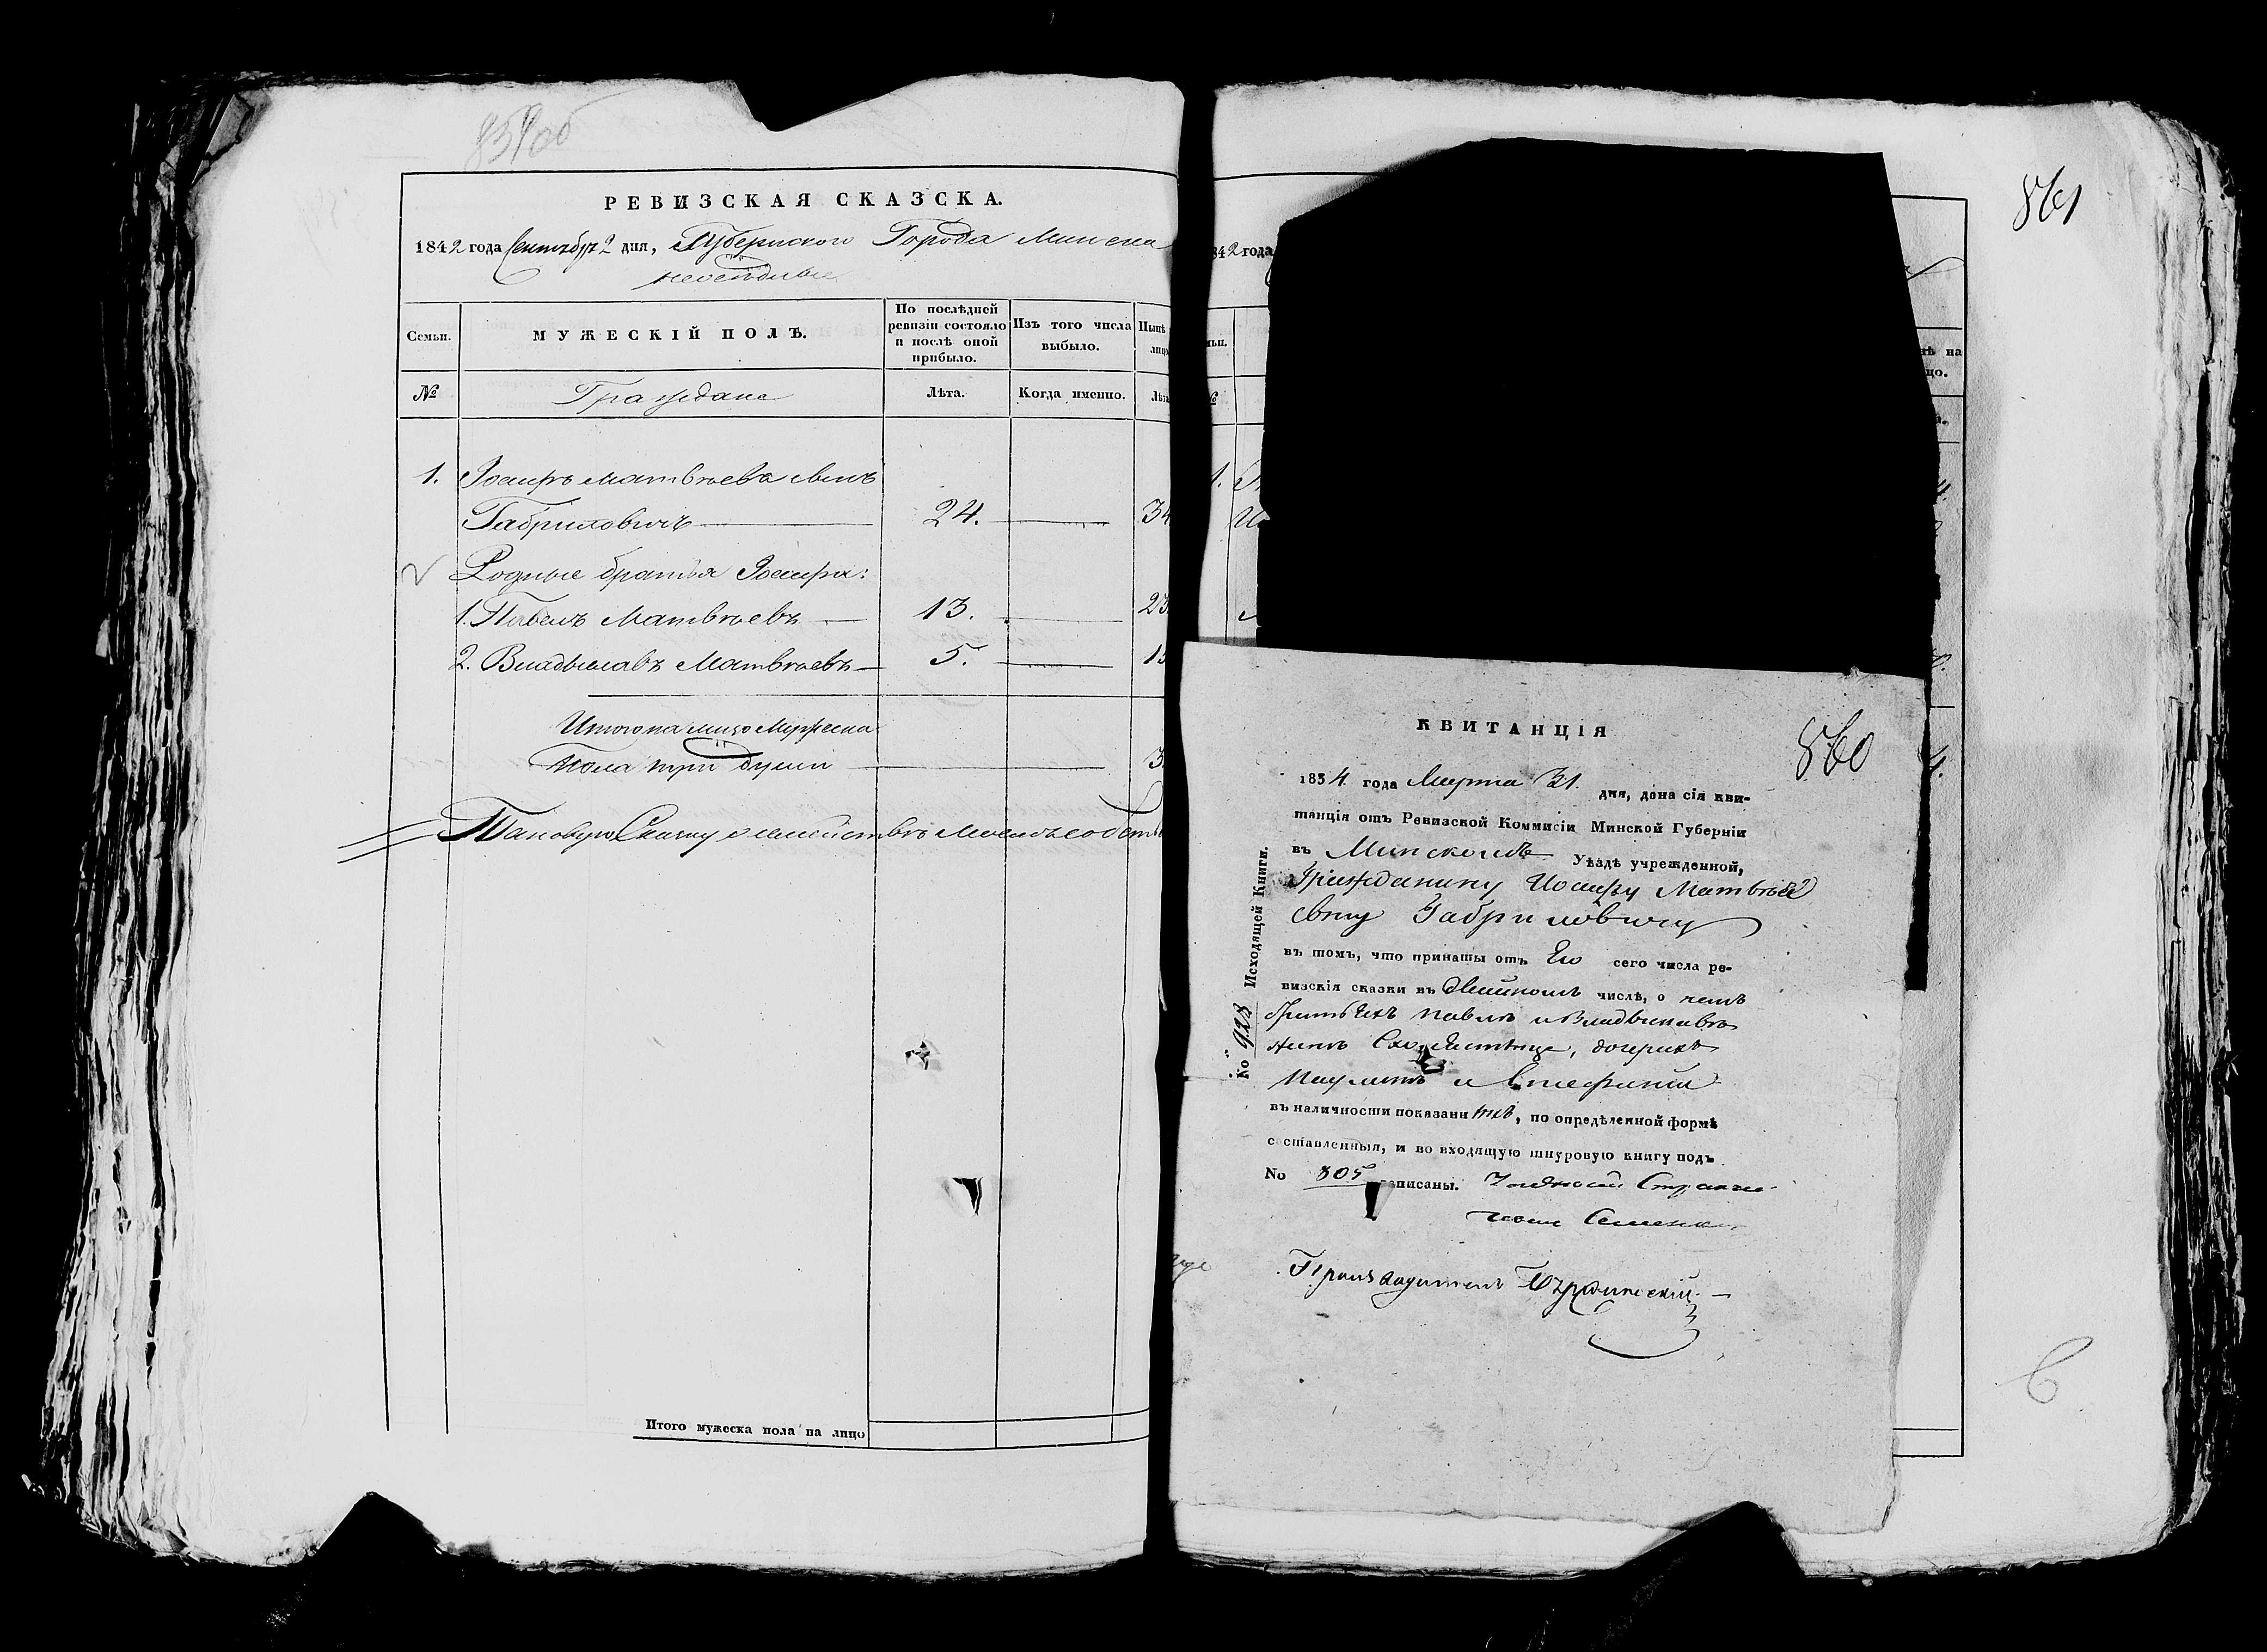 859об
РЕВИЗСКАЯ СКАЗСКА.
1842 года Сентября 2 дня, Губернскаго Города Минска
неоседлые
Семьи.
МУЖЕСКІЙ ПОЛЪ.
По послѣдней ревизіи состояло и послѣ оной прибыло.
Изъ того числа выбыло.
Нынѣ
лицо
№
Граждане
Лѣта.
Когда именно.
Лѣта
1. Іосифъ Матвѣевъ сынъ
Габриловичъ 24. 34
Родные братья Іосифа:
1. Павелъ Матвѣевъ 13. 23
2. Владыславъ Матвѣевъ 5. 15
Итого на лицо Мужеска
Пола три души 3
Таковую Сказку о семействѣ моемъ
Итого мужеска пола на лицо
861
842 года
№
1.
нѣ на
цо.
4.
КВИТАНЦІЯ
860
1834 года Марта 31. дня, дана сія кви-
танція отъ Ревизской Коммисіи Минской Губерніи
въ Минскомъ Уѣздѣ учрежденной,
Гражданину Иосифу Матвѣеву
сыну Габриловичу
въ томъ, что приняты отъ Его сего числа ре-
визскія сказки въ числѣ, о немъ
братьяхъ Павлѣ и Владыславѣ
женѣ дочеряхъ
Паулинѣ и Стефаніи
въ наличности показаннихъ, по опредѣленной формѣ
составленныя, и во входящую шнуровую книгу подъ
No 805 записаны.
Производитель
Ко 928 Исходящей Книги.